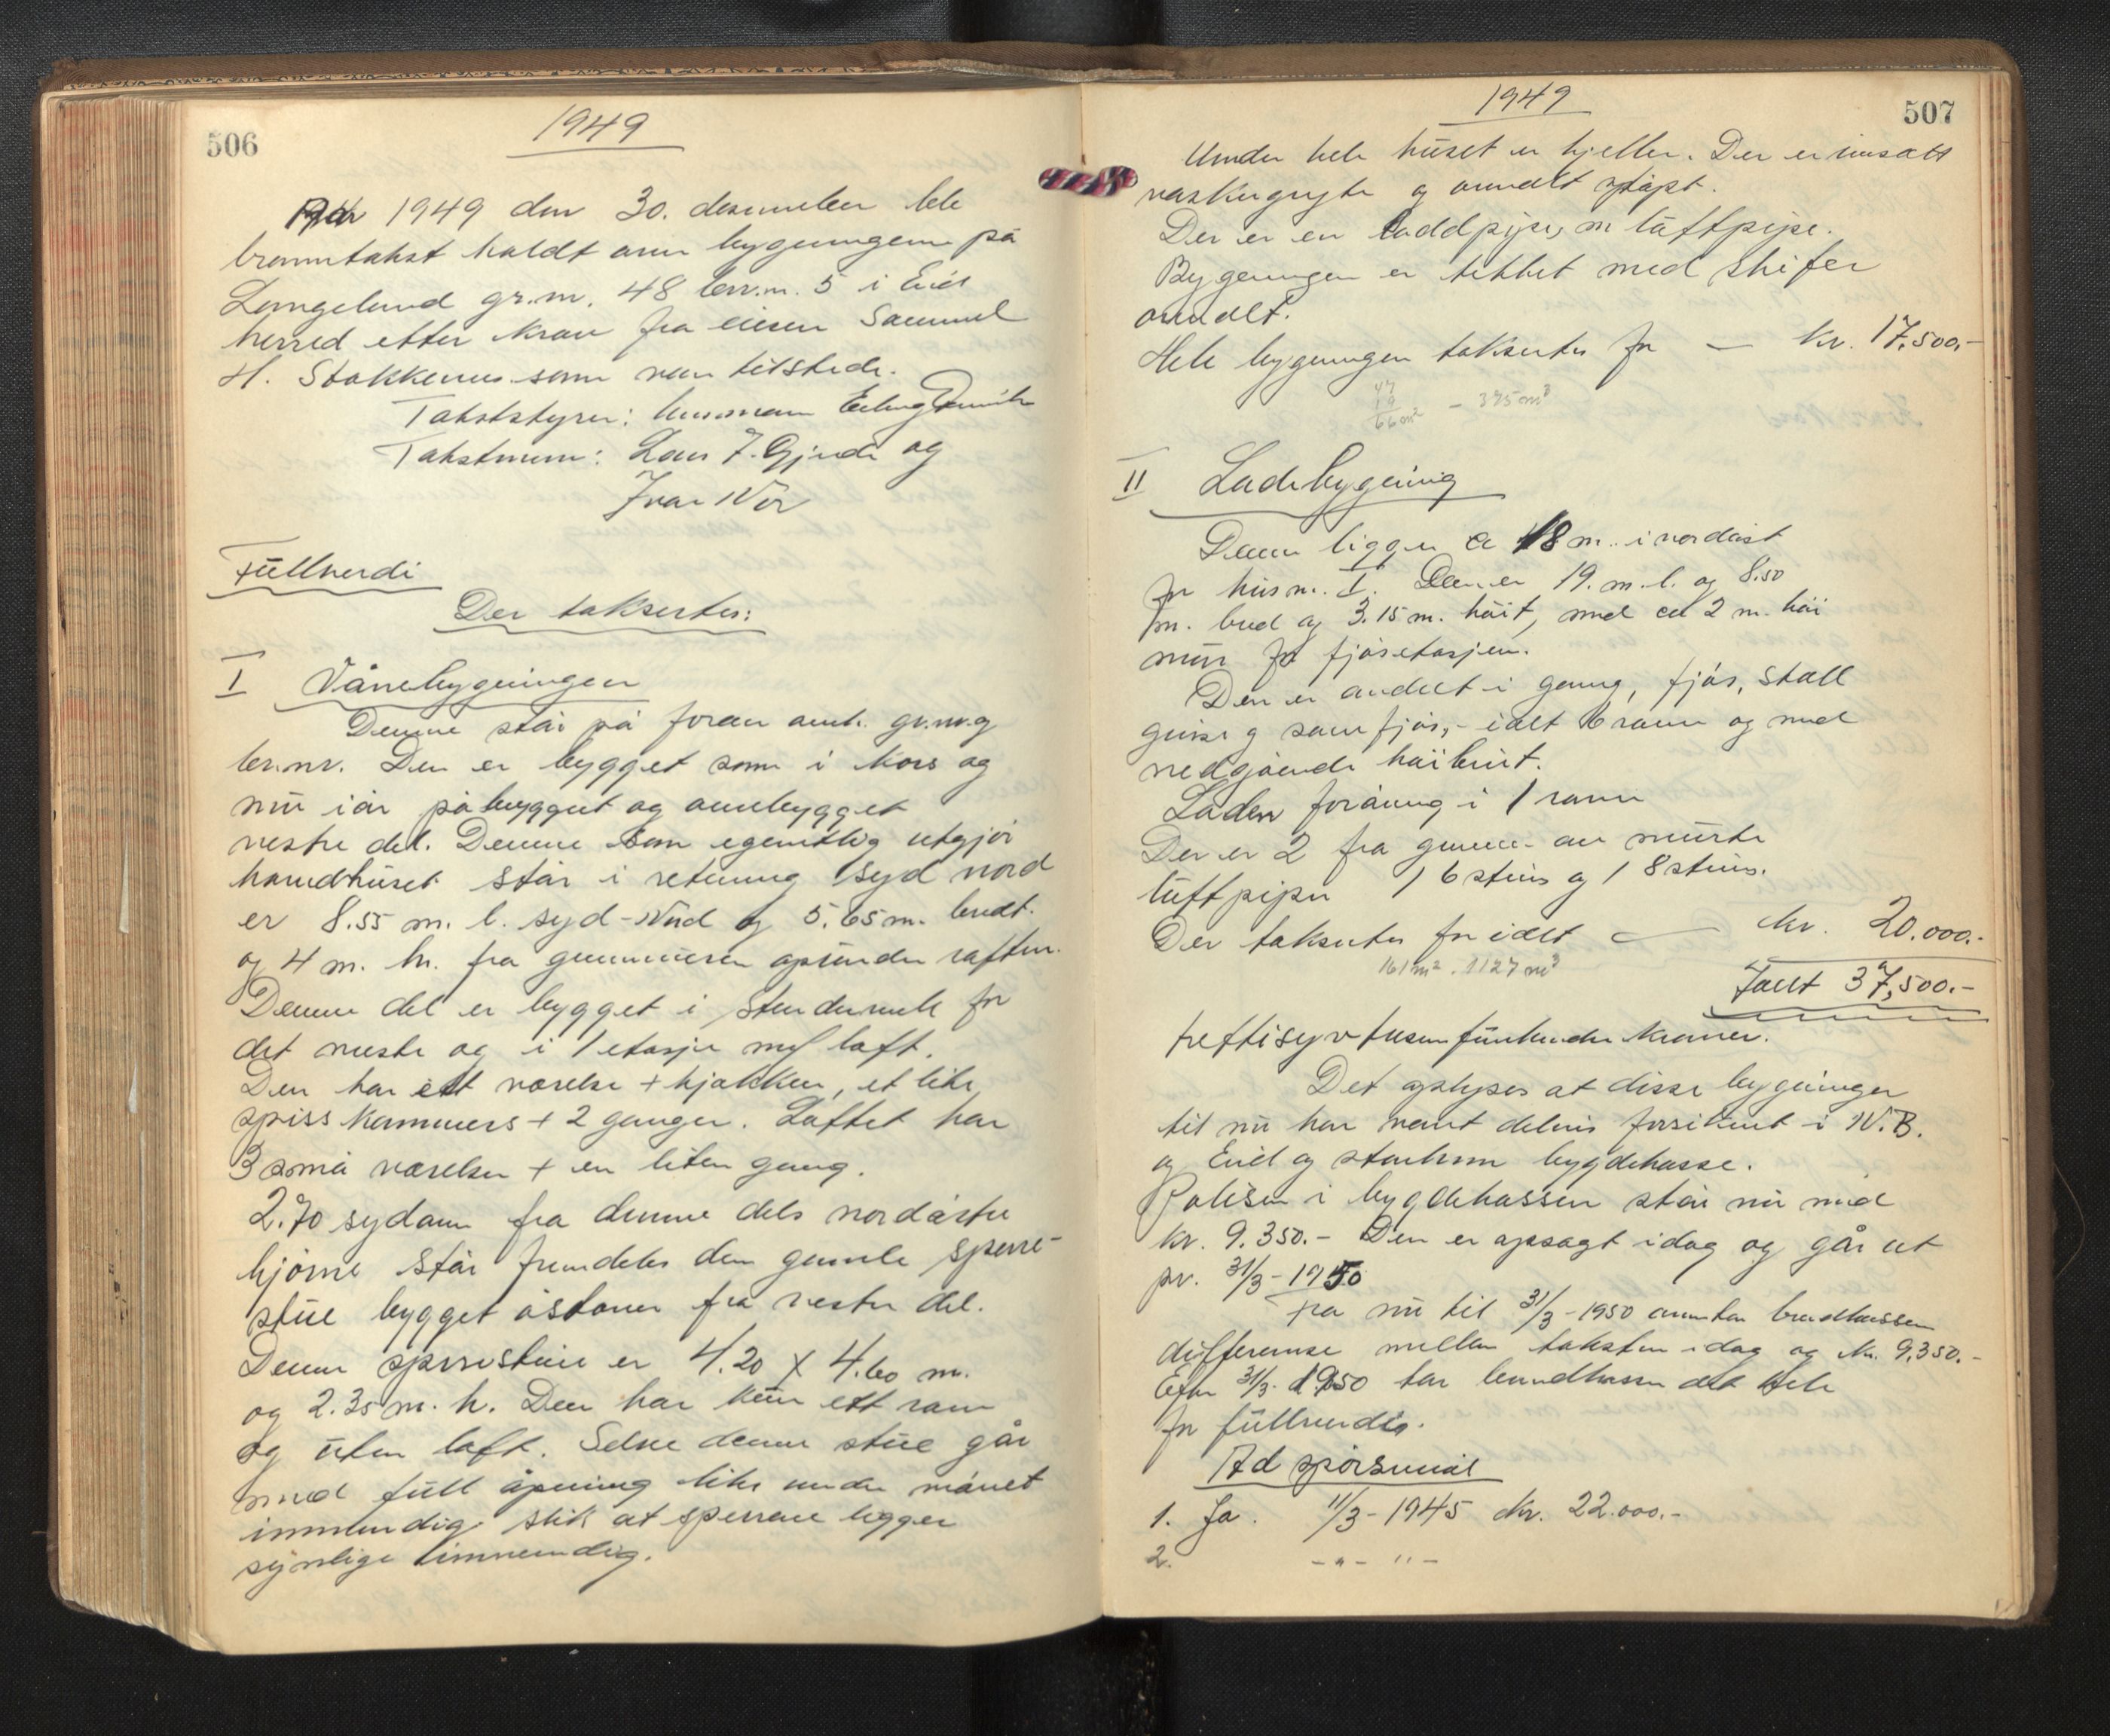 506
1949
År 1949 den 30. desember ble
branntakst holdt over bygningene på
Langeland gr.nr. 48 br.nr. 5 i Eid
herred etter krav fra eieren Samuel
H. Stokkenes som var tilstede.
Takststyrer: lensmann Erling
Takstmenn: Lars J. Gjerde og
Ivar Nor
Fullverdi
Der taksertes:
I Vånebygningen
Denne står på foran ant. gr.nr. og
br.nr. Den er bygget som i kors og
nu i år påbygget og ombygget
vestre del. Denne som egentlig utgjør
hovedhuset står i retning syd nord
er 8.55 m. l. syd-Nord og 5.65 m. bredt.
og 4 m. h. fra grunnmuren opunder raften.
Denne del er bygget i stenderverk for
det meste og i 1 etasje m/ loft.
Den har ett værelse + kjøkken, et lite
spisskammers + 2 ganger. Loftet har
3 små værelser + en liten gang.
2.70 sydom fra denne dels nordøstre
hjørne står fremdeles den gamle sperre-
stue bygget østover fra vestre del.
Denne sperrestue er 4.20 x 4.60 m.
og 2.35 m. h. Den har kun ett rom
og uten loft. Selve denne stue går
med full åpning like under mønet
innvendig slik at sperrene ligger
synlige innvendig.
507
1949
Under hele huset er kjeller. Der er innsatt
vaskegryte og omdelt støpt.
Der er en loddpipe, m luftpipe.
Bygningen er tekket med skifer
overalt.
Hele bygningen taksertes for — kr. 17.500,-
47
19
66 m² - 375 m³
II Ladebygning
Denne ligger ca 18 m. i nordøst
for hus nr. I. Den er 19. m. l. og 8.50
m. bred og 3.15 m. høit, med ca 2 m. høi
mur for fjøsetasjen.
Den er avdelt i gang, fjøs, stall
geise og sauefjøs, - ialt 6 rom og med
nedgående høibrut.
Laden forøvrig i 1 rom
Der er 2 fra grunnen av murte
luftpiper 1 6 steins og 1 8 steins.
Der taksertes for ialt — kr. 20.000.-
161 m². 1127 m³
Ialt 37,500.-
trettisyvtusenfemhundre kroner.
Det oplyses at disse bygninger
til nu har været delvis forsikret i N.B.
og Eid og Stårheim bygdekasse.
Polisen i bygdekassen står nu med
kr. 9.350.- Den er opsagt idag og går ut
pr. 31/3-1950
Fra nu til 31/3-1950 overtar brandkassen
differense mellem taksten idag og kr. 9,350.-
Efter 31/3. 1950 tar brandkassen det hele
for fullverdi.
Ad spørsmål
1. Ja. 11/3-1945 kr. 22.000.-
2. -"- "-